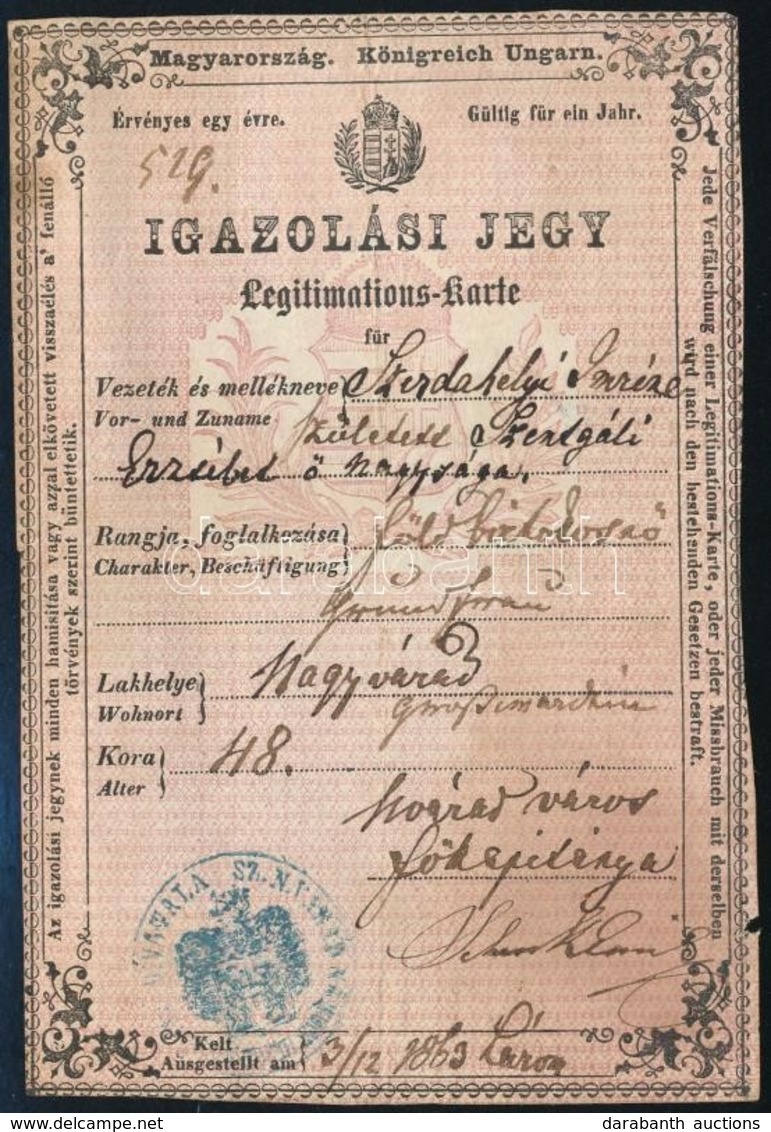 Magyarország. Königreich Ungarn.
Érvényes egy évre. Gültig für ein Jahr.
519.
IGAZOLÁSI JEGY
Legitimations-Karte
für
Vezeték és mellékneve Szerdahelyi Imréné
Vor- und Zuname született Szentgáli
Erzsébet ő Nagysága.
Rangja, foglalkozása földbirtokosnő
Charakter, Beschäftigung
Grundfrau
Lakhelye Nagyvárad
Wohnort Großwardein
Kora 48.
Alter
Nvárad város
főkapitánya
Kelt
Ausgestellt am 3/12 1863
Az igazolási jegynek minden hamisítása vagy azzal elkövetett visszaélés a' fenálló
törvények szerint büntettetik.
Jede Verfälschung einer Legitimations-Karte, oder jeder Missbrauch mit derselben
wird nach den bestehenden Gesetzen bestraft.
darabanth
darabanth auctions